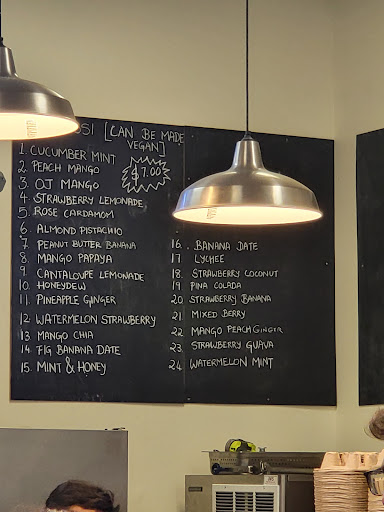 [CAN BE MADE
VEGAN]
$7.00
1. CUCUMBER MINT
2. PEACH MANGO
3. OJ MANGO
4. STRAWBERRY LEMONADE
5. ROSE CARDAMOM
6. ALMOND PISTACHIO
7. PEANUT BUTTER BANANA
8. MANGO PAPAYA
9. CANTALOUPE LEMONADE
10. HONEYDEW
11. PINEAPPLE GINGER
12 WATERMELON STRAWBERRY
13 MANGO CHIA
14 FIG BANANA DATE
15. MINT & HONEY
16. BANANA DATE
17 LYCHEE
18. STRAWBERRY COCONUT
19 PINA COLADA
20 STRAWBERRY BANANA
21 MIXED BERRY
22 MANGO PEACH GINGER
23 STRAWBERRY GUAVA
24 WATERMELON MINT